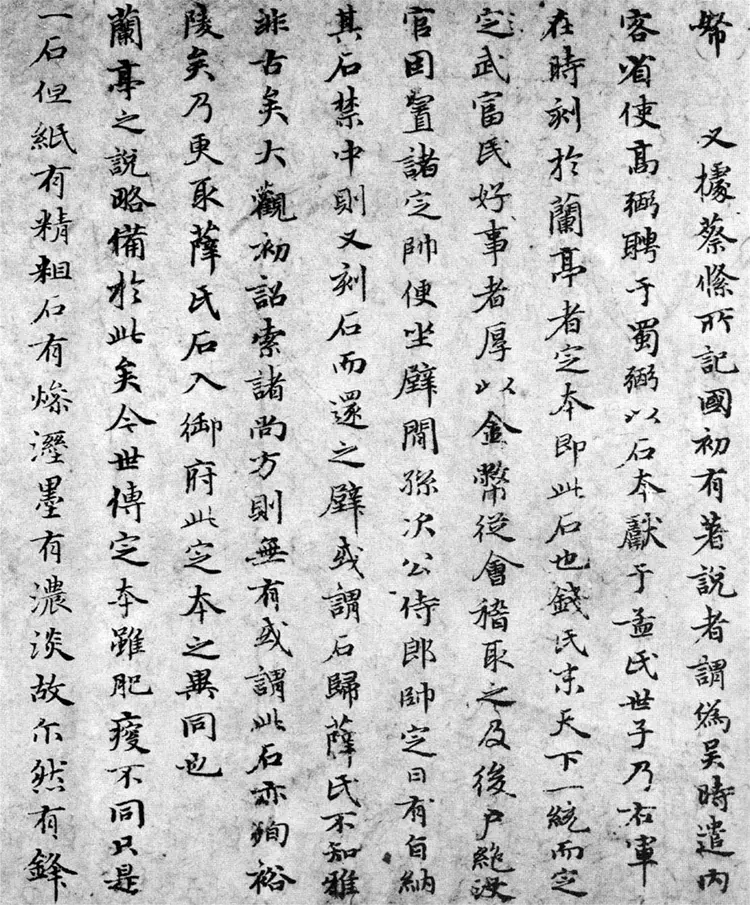 幣 又據蔡絛所記國初有著說者謂為吳時遣內
客省使高弼聘于蜀弼以石本獻于孟氏世子乃右軍
在時刻於蘭亭者定本即此石也錢氏末天下一統而定
定武富民好事者厚以金幣從會稽取之及後戶絕沒
官因置諸定帥便坐壁間孫次公侍郎帥定日有旨納
其石禁中則又刻石而還之壁或謂石歸薛氏不知雅
非古矣大觀初詔索諸尚方則無有或謂此石亦殉裕
陵矣乃更取薛氏石入御府此定本之異同也
蘭亭之說略備於此矣今世傳定本雖肥瘦不同只是
一石但紙有精粗石有燥溼墨有濃淡故尔然有鋒